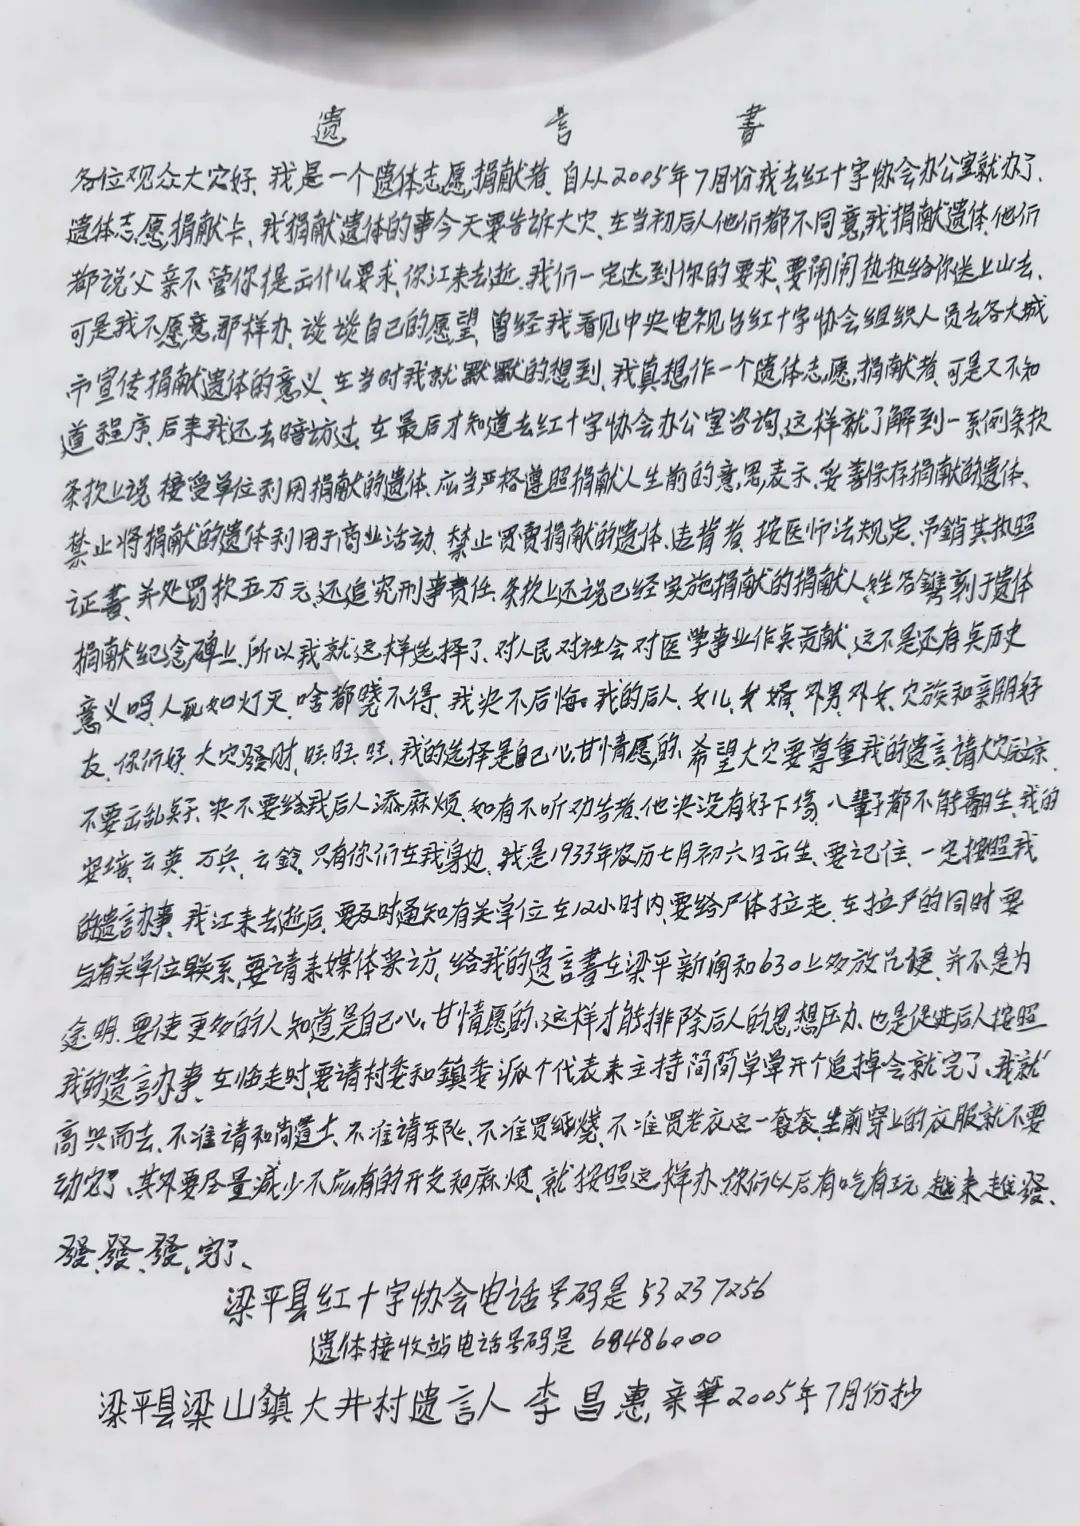 遗言書
各位观众大家好、我是一个遗体志愿捐献者、自从2005年7月份我去红十字协会办公室就办了、
遗体志愿捐献卡、我捐献遗体的事今天要告诉大家、在当初后人他们都不同意我捐献遗体、他们
都说父亲不管你提出什么要求、你江来去逝、我们一定达到你的要求、要闹闹热热给你送上山去、
可是我不愿意那样办、谈谈自己的愿望、曾经我看见中央电视台红十字协会组织人员去各大城
市宣传捐献遗体的意义、在当时我就默默的想到、我真想作一个遗体志愿捐献者、可是又不知
道程序、后来我还去暗访过、在最后才知道去红十字协会办公室咨询、这样就了解到一系例条款
条款上说、接受单位利用捐献的遗体、应当严格遵照捐献人生前的意思表示、妥善保存捐献的遗体、
禁止将捐献的遗体利用于商业活动、禁止买卖捐献的遗体、违背者、按医师法规定、吊銷其执照
证書、并处罚款五万元、还追究刑事责任、条款上还说已经实施捐献的捐献人、姓名鐫刻于遗体
捐献纪念碑上、所以我就这样选择了、对人民对社会对医学事业作点贡献、这不是还有点历史
意义吗、人死如灯灭、啥都晓不得、我决不后悔、我的后人、女儿、女婿、外男、外女、家族和亲朋好
友、你们好、大家發财、旺、旺、旺、我的选择是自己心甘情愿的、希望大家要尊重我的遗言、请大家
不要云乱、决不要给我后人添麻烦、如有不听劝告者、他决没有好下場、八輩子都不能翻生、我的
云英、万兵、云鈴、只有你们在我身边、我是1933年农历七月初六日出生、要记住、一定按照我
的遗言办事、我江来去逝后、要及时通知有关单位在12小时内、要给尸体拉走、在拉尸的同时要
与有关单位联系、要请来媒体采访、给我的遗言書在梁平新闻和630上多放几便、并不是为
出明、要使更多的人知道是自己心甘情愿的、这样才能排除后人的思想压力、也是促进后人按照
我的遗言办事、在临走时要请村委和鎮委派个代表来主持简简单单开个追掉会就完了、我就
高兴而去、不准请和尚道士、不准请乐队、不准買纸烧、不准買老衣这一套套、生前穿上的衣服就不要
动它了、其外要尽量减少不应有的开支和麻烦、就按照这样办、你们以后有吃有玩、越来越發、
發、發、發、完了、
梁平县红十字协会电话号码是53237256
遗体接收站电话号码是68486000
梁平县梁山鎮大井村遗言人李昌惠、亲筆2005年7月份抄